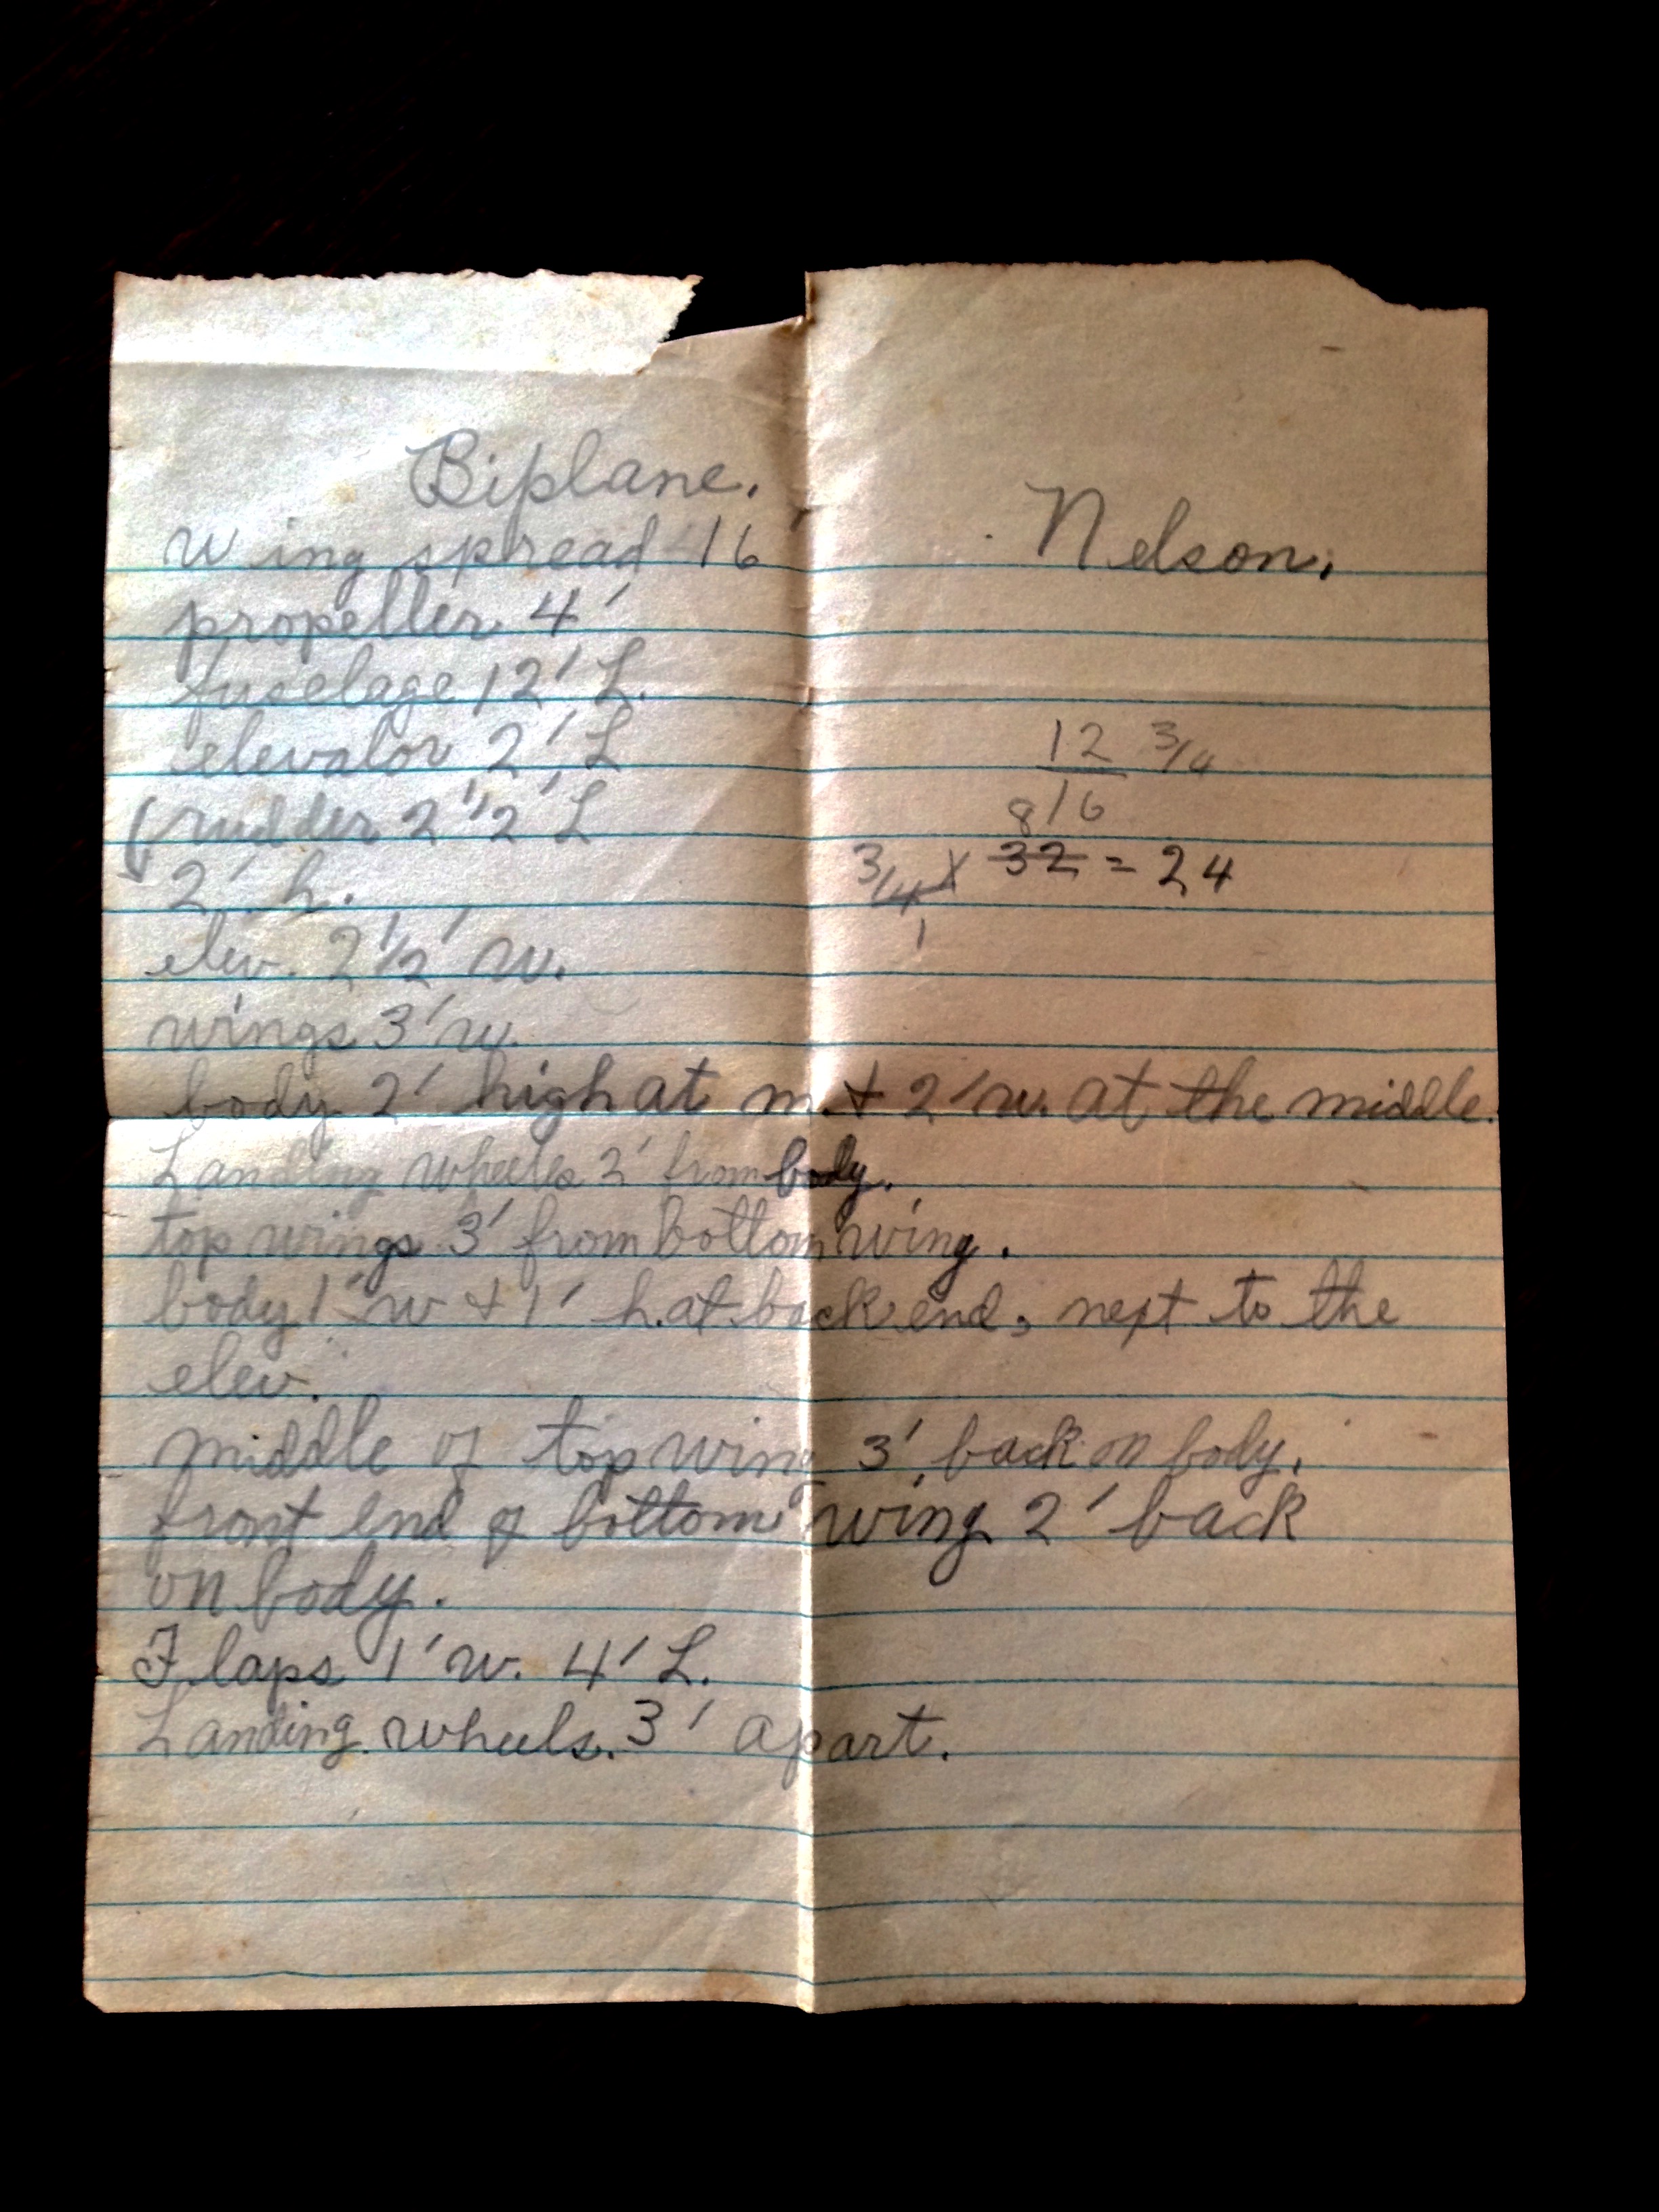 Biplane.
Nelson.
Wing spread 16'
propeller 4'
fuselage 12' L.
elevator 2' L
12 3/4
16
(rudder 2 1/2' L
8
3/4 x 32 = 24
1
2' h.
elev. 2 1/2' w.
wings 3' w.
body 2' high at m. + 2' w. at the middle.
Landing wheels 2' from body.
top wings 3' from bottom wing.
body 1' w + 1' h. at back end, next to the
elev.
middle of top wing 3' back on body.
front end of bottom wing 2' back
on body.
Flaps 1' w. 4' L.
Landing wheels. 3' apart.